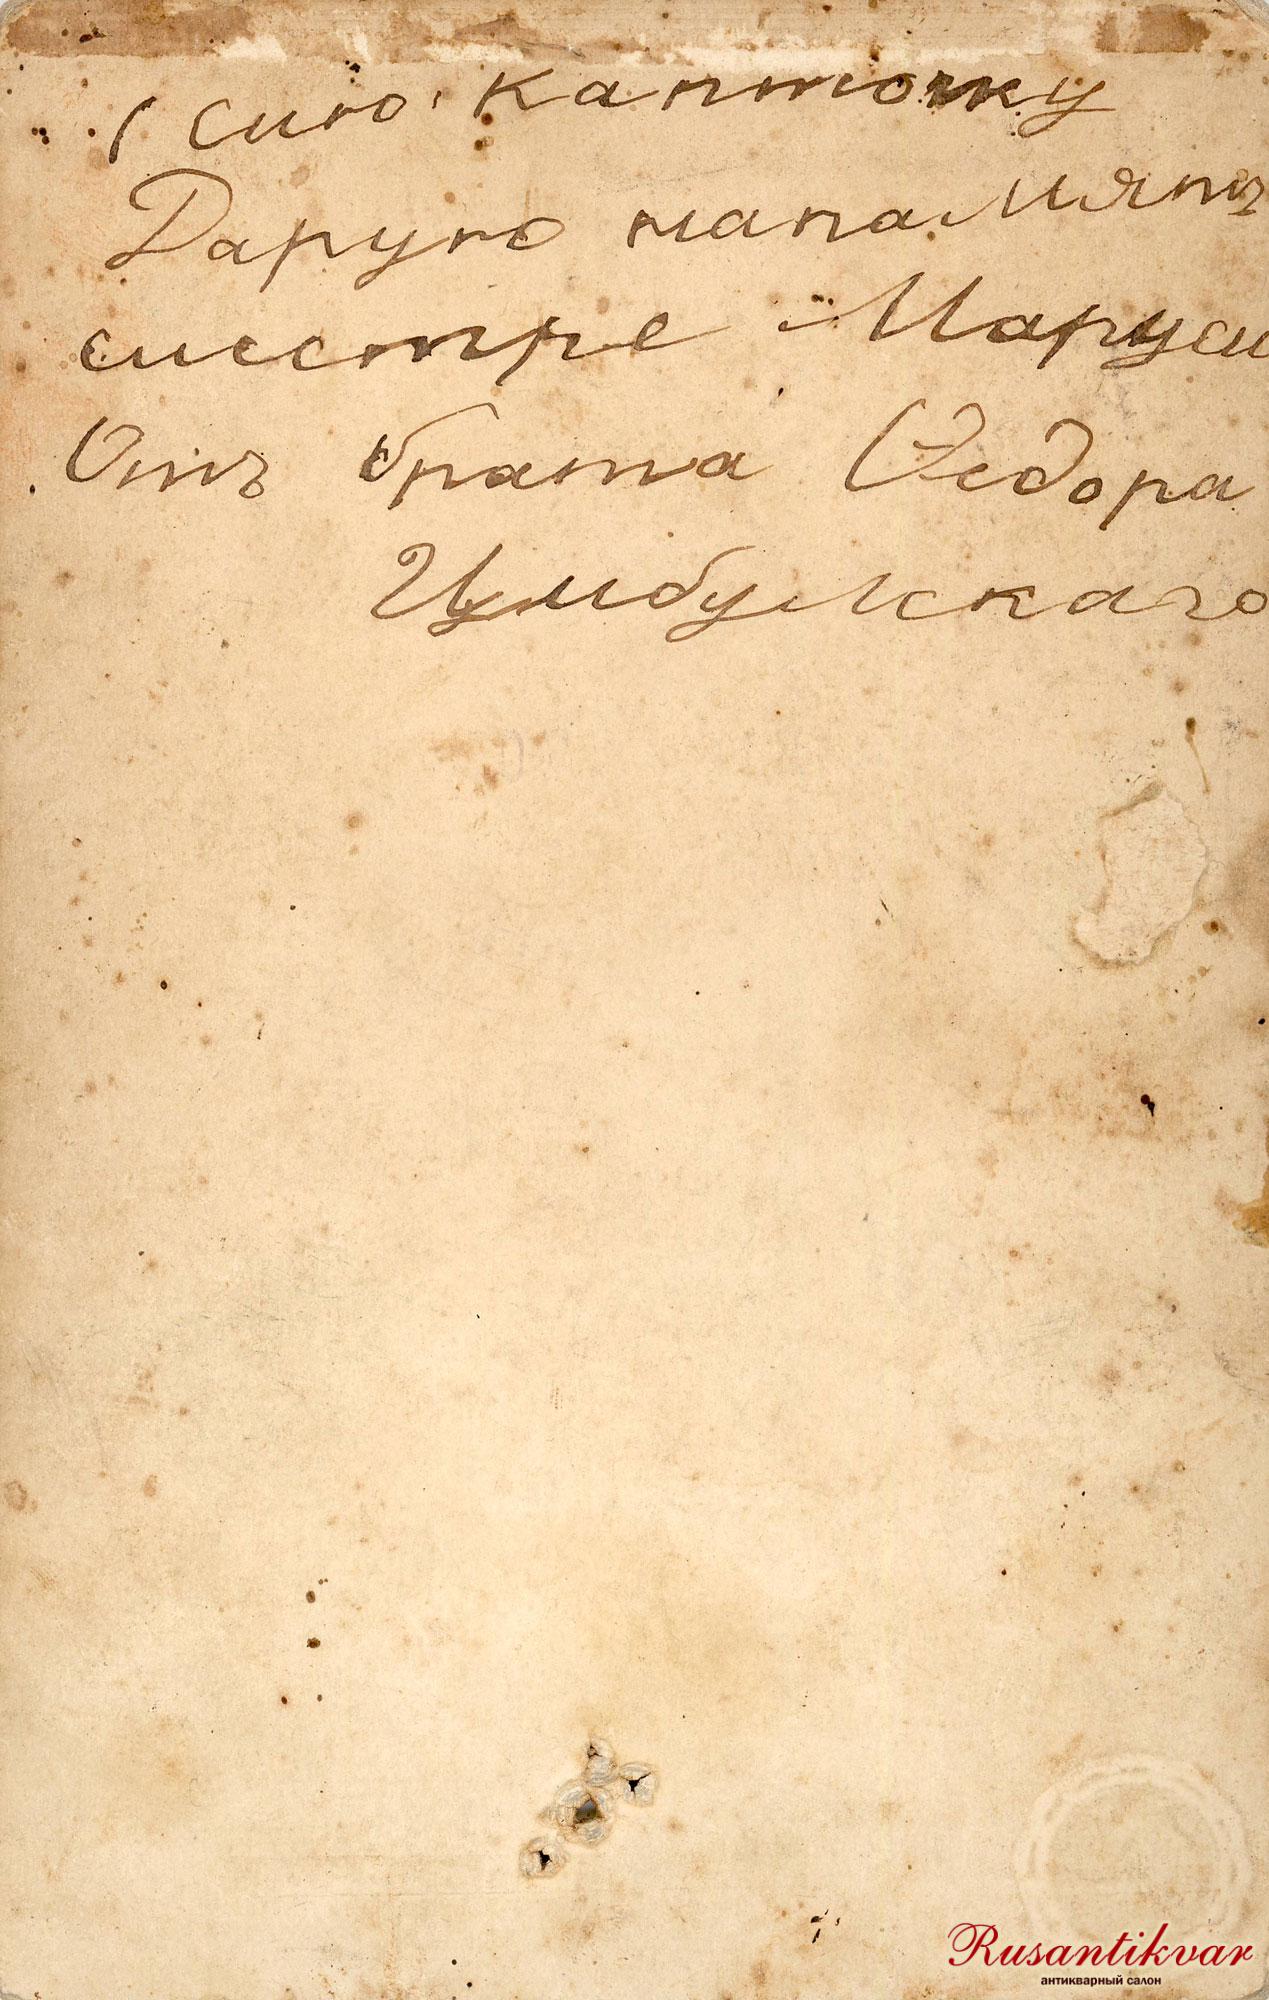 Сию карточку
Дарую напамять
сиестре Маруси
Отъ брата Ѳедора
Цимбульскаго
Rusantikvar
антикварный салон